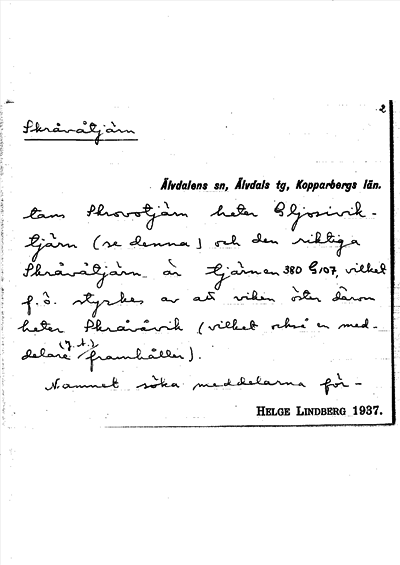 2
Skråvåtjärn
Älvdalens sn, Älvdals tg, Kopparbergs län.
tans Skrovotjärn heter Gljosivik-
tjärn (se denna) och den riktiga
Skråvåtjärn är tjärnen 380 G107, vilket
f.ö. styrkes av att viken öster därom
heter Skråvåvik (vilket också en med-
delare (J.A.) framhåller).
Namnet söka meddelarna för-
HELGE LINDBERG 1937.